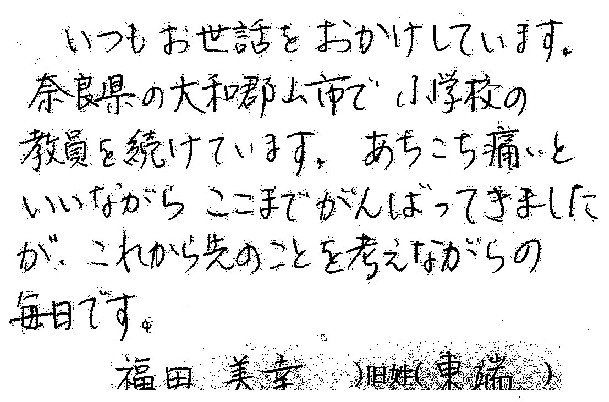 いつもお世話をおかけしています。
奈良県の大和郡山市で小学校の
教員を続けています。あちこち痛いと
いいながらここまでがんばってきました
が、これから先のことを考えながらの
毎日です。
福田 美幸 )旧姓(東端 )